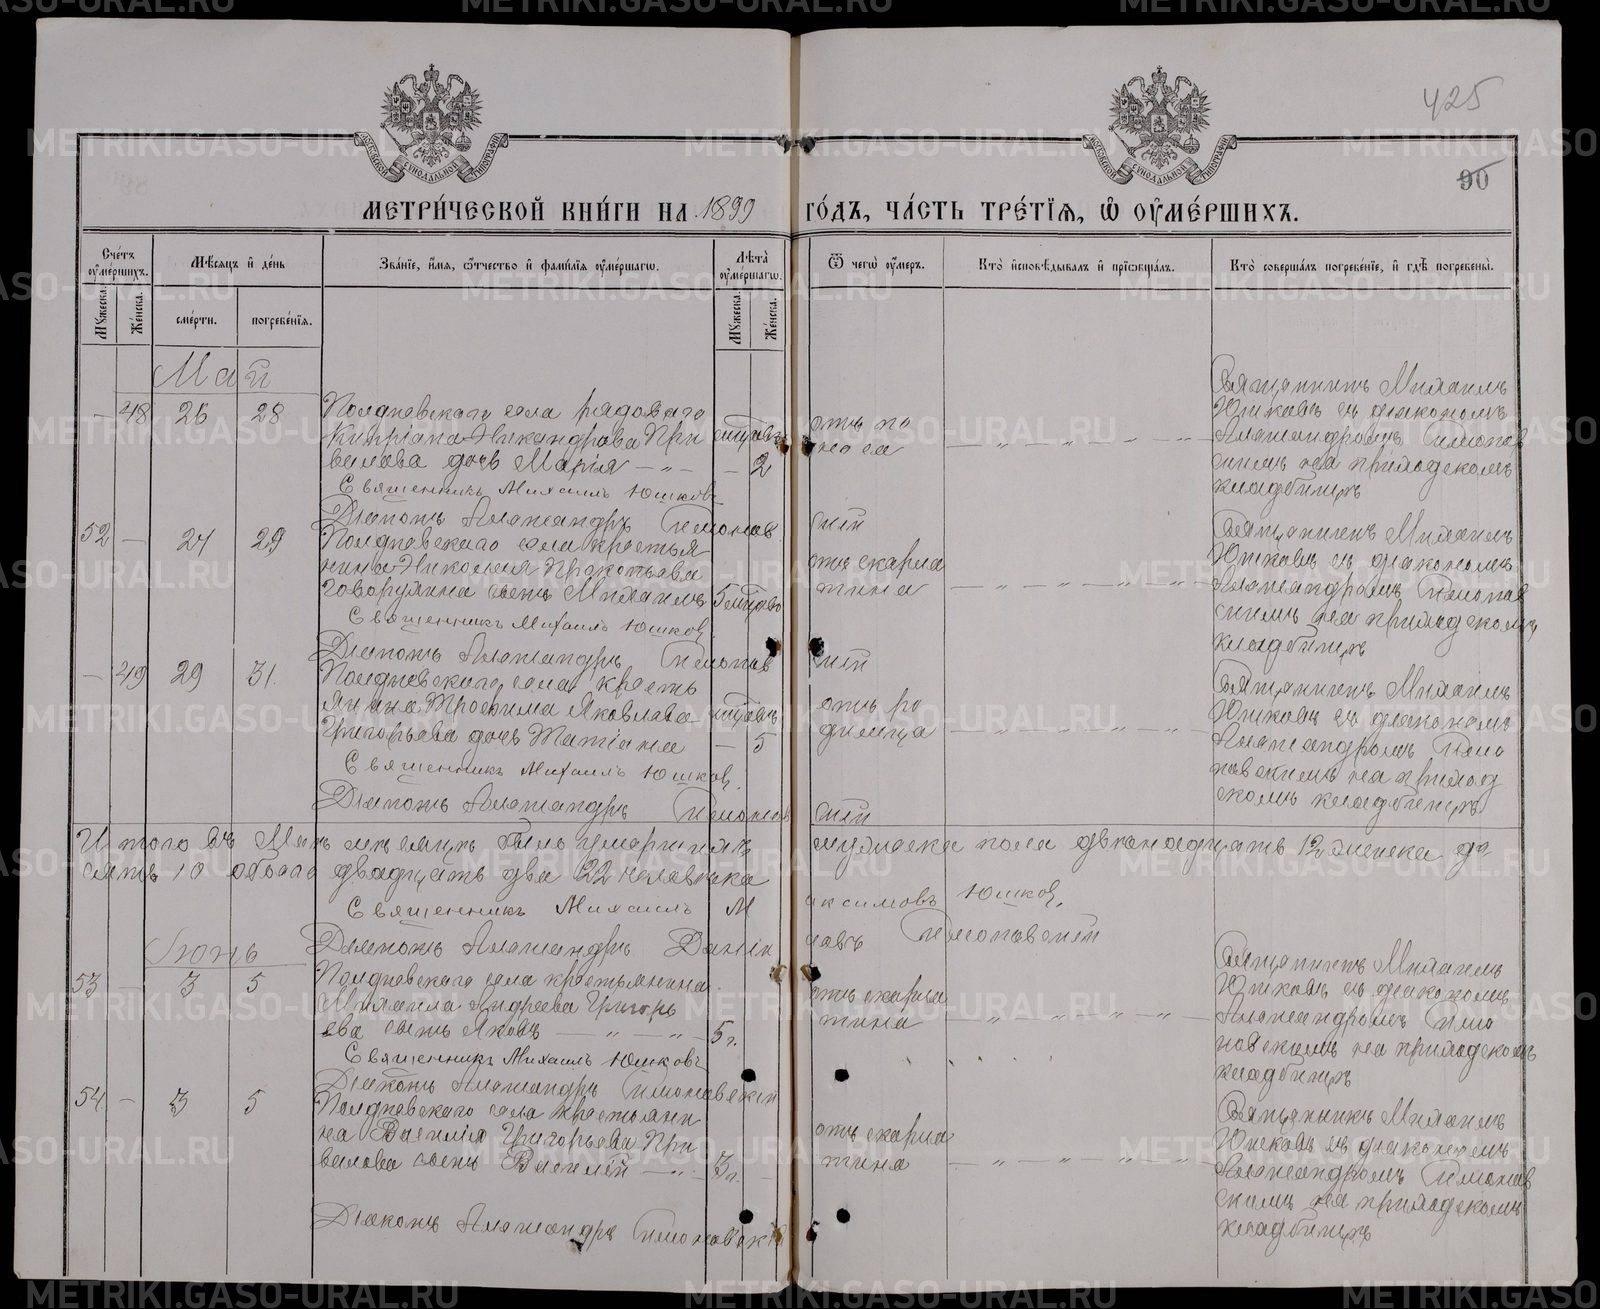 425
90
МЕТРИ́ЧЕСКОЙ КНИ́ГИ НА 1899 ГО́ДЪ, ЧА́СТЬ ТРЕ́ТІЯ, Ѡ҆ ОУ҆МЕ́РШИХЪ.
Сче́тъ оу҆ме́ршихъ.
Мѣ́сяцъ и҆ де́нь
Зва́ніе, и҆́мя, ѻ҆́тчество и҆ фами́лія оу҆ме́ршагѡ.
Лѣ́та оу҆ме́ршагѡ.
Ѿ чегѡ̀ оу҆́меръ.
Кто̀ и҆сповѣ́дывалъ и҆ прїѡбща́лъ.
Кто̀ соверша́лъ погребе́ніе, и҆ гдѣ̀ погребены̀.
Мꙋ́жеска.
Же́нска.
сме́рти.
погребе́нїя.
Мꙋ́жеска.
Же́нска.
Май
— 48 26 28
Полдневскаго села рядоваго
Кипріана Никандрова При
валова дочь Марія — „ —
мѣсяцъ
— 2
отъ по
носа
Священникъ Михаилъ
Юшковъ съ діакономъ
Александромъ Пимонов
скимъ на приходскомъ
кладбищѣ
Священникъ Михаилъ Юшковъ
Діаконъ Александръ Пимоновскій
52 — 24 29
Полдневскаго села крестья
нина Николая Прокопьева
Говорухина сынъ Михаилъ
5 мѣсяцевъ
отъ скарла
тина
Священникъ Михаилъ
Юшковъ съ діакономъ
Александромъ Пимонов
скимъ на приходскомъ
кладбищѣ
Священникъ Михаилъ Юшковъ
Діаконъ Александръ Пимоновскій
— 49 29 31.
Полдневскаго села кресть
янина Трофима Яковлева
Григорьева дочь Татіана
мѣсяцевъ
— 5
отъ ро
димца
Священникъ Михаилъ
Юшковъ съ діакономъ
Александромъ Пимо
новскимъ на приход
скомъ кладбищѣ
Священникъ Михаилъ Юшковъ
Діаконъ Александръ Пимоновскій
Итого въ Маѣ мѣсяцѣ было умершихъ мужеска пола двѣнадцать 12 женска де
сять 10 обоего двадцать два 22 человѣка
Священникъ Михаилъ Максимовъ Юшковъ.
Діаконъ Александръ Даніиловъ Пимоновскій
Іюнь
53 — 3 5
Полдневскаго села крестьянина
Михаила Андреева Григорь
ева сынъ Яковъ — „ — „ —
5 г.
отъ скарла
тина
Священникъ Михаилъ
Юшковъ съ діакономъ
Александромъ Пимо
новскимъ на приходскомъ
кладбищѣ
Священникъ Михаилъ Юшковъ
Діаконъ Александръ Пимоновскій
54 — 3 5
Полдневскаго села крестьяни
на Василія Григорьева При
валова сынъ Василій — „ —
3 г.
отъ скарла
тина
Священникъ Михаилъ
Юшковъ съ діакономъ
Александромъ Пимонов
скимъ на приходскомъ
кладбищѣ
Діаконъ Александръ Пимоновскій
METRIKI.GASO-URAL.RU